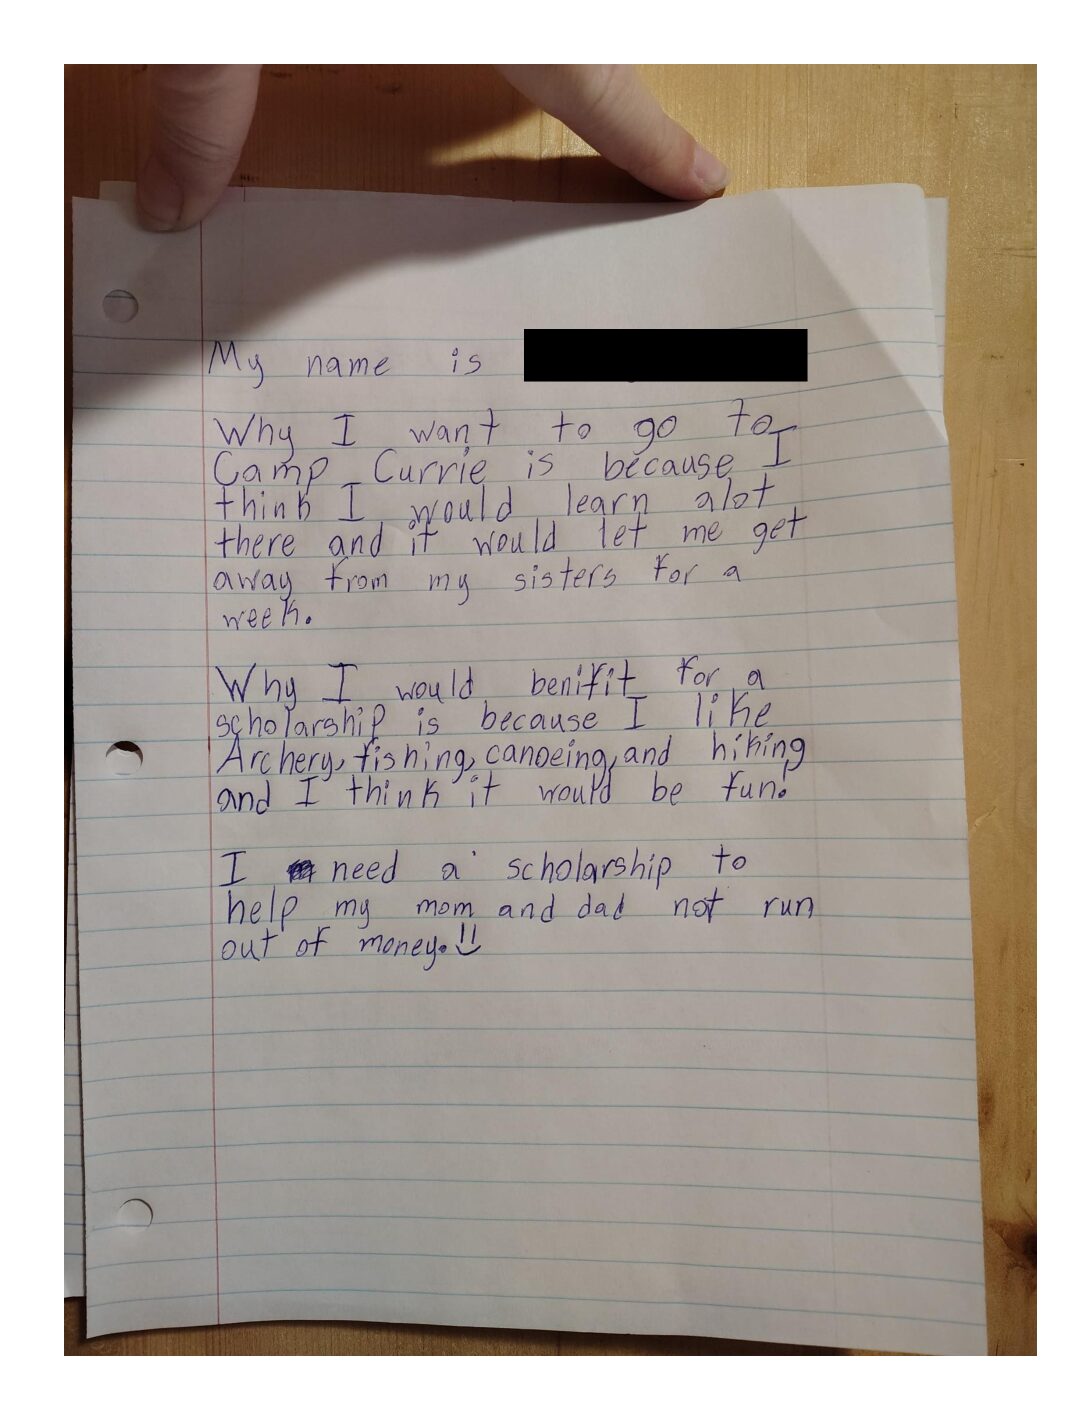 My name is
Why I want to go to
Camp Currie is because I
think I would learn alot
there and it would let me get
away from my sisters for a
week.
Why I would benifit for a
scholarship is because I like
Archery, fishing, canoeing, and hiking
and I think it would be fun!
I need a scholarship to
help my mom and dad not run
out of money.